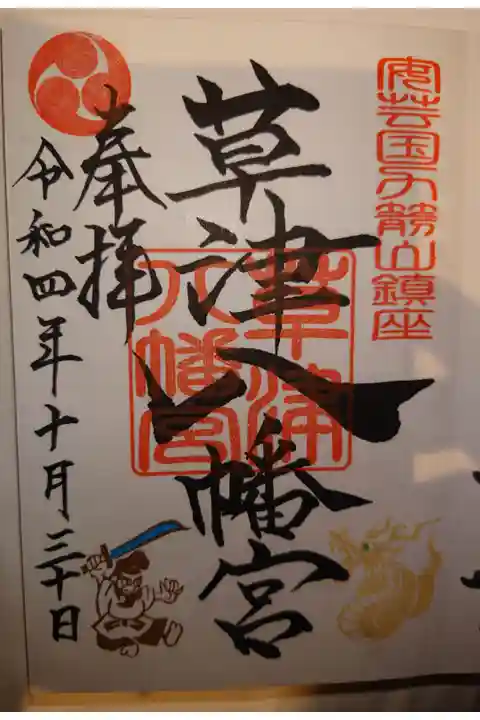 安芸国力静山鎮座
草津八幡宮
草津
八幡宮
奉拝
令和四年十月三十日